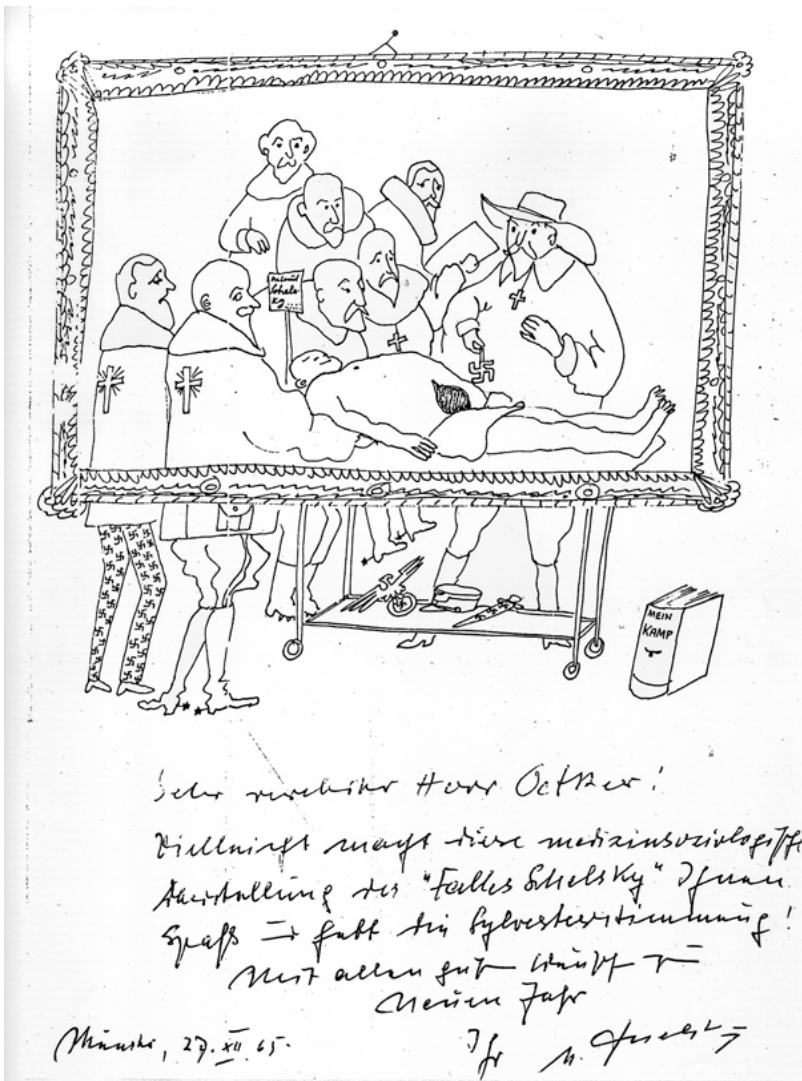 Helmut
Schels-
ky
MEIN
KAMP
Sehr verehrter Herr Oetker!
Vielleicht macht diese medizinsoziologische
Darstellung des "Falles Schelsky" Ihnen
Spaß und hebt die Sylvesterstimmung!
Mit allen guten Wünschen zum
Neuen Jahr
Münster, 27. XII 65. Ihr H. Schelsky